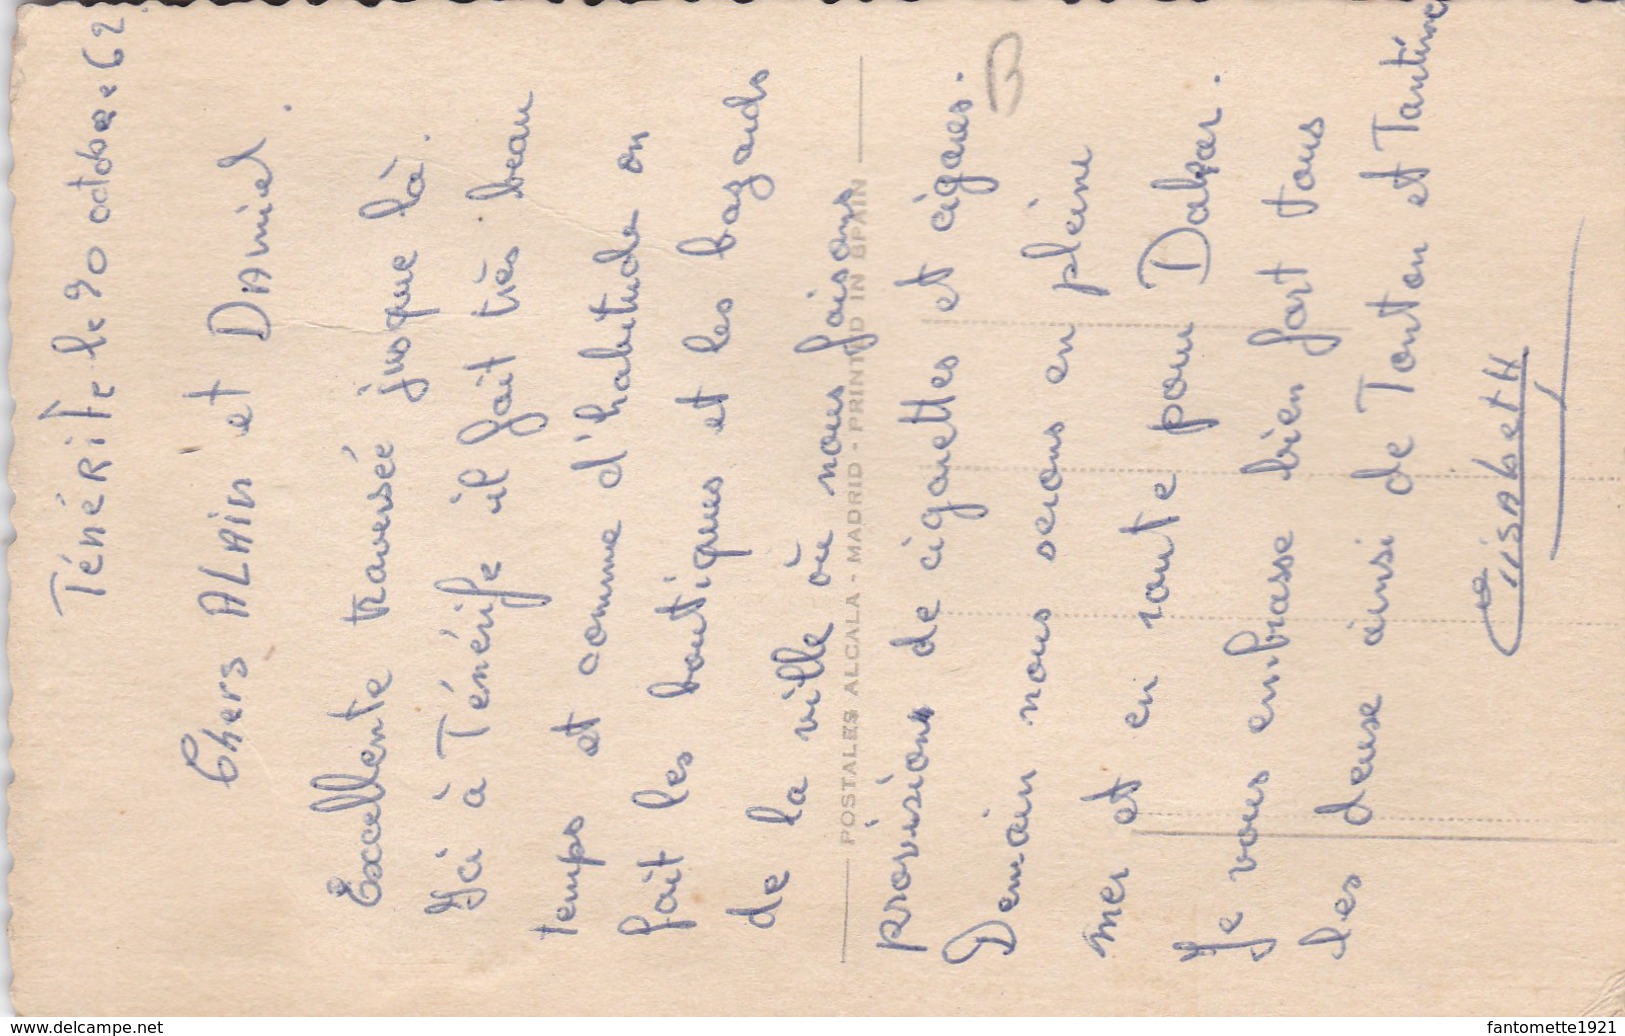 TéNéRiFe le 30 octobre 62
Chers ALAin et DAniel.
Excellente traversée jusque là.
Ici à Ténérife il fait très beau
temps et comme d'habitude on
fait les boutiques et les bazards
de la ville où nous faisons
POSTALES ALCALA - MADRID - PRINTED IN SPAIN
provisions de cigarettes et cigares.
Demain nous serons en pleine
mer et en route pour Dakar.
Je vous embrasse bien fort tous
les deux ainsi de Tonton et Tantine
ÉlisAbetH
www.delcampe.net
fantomette1921